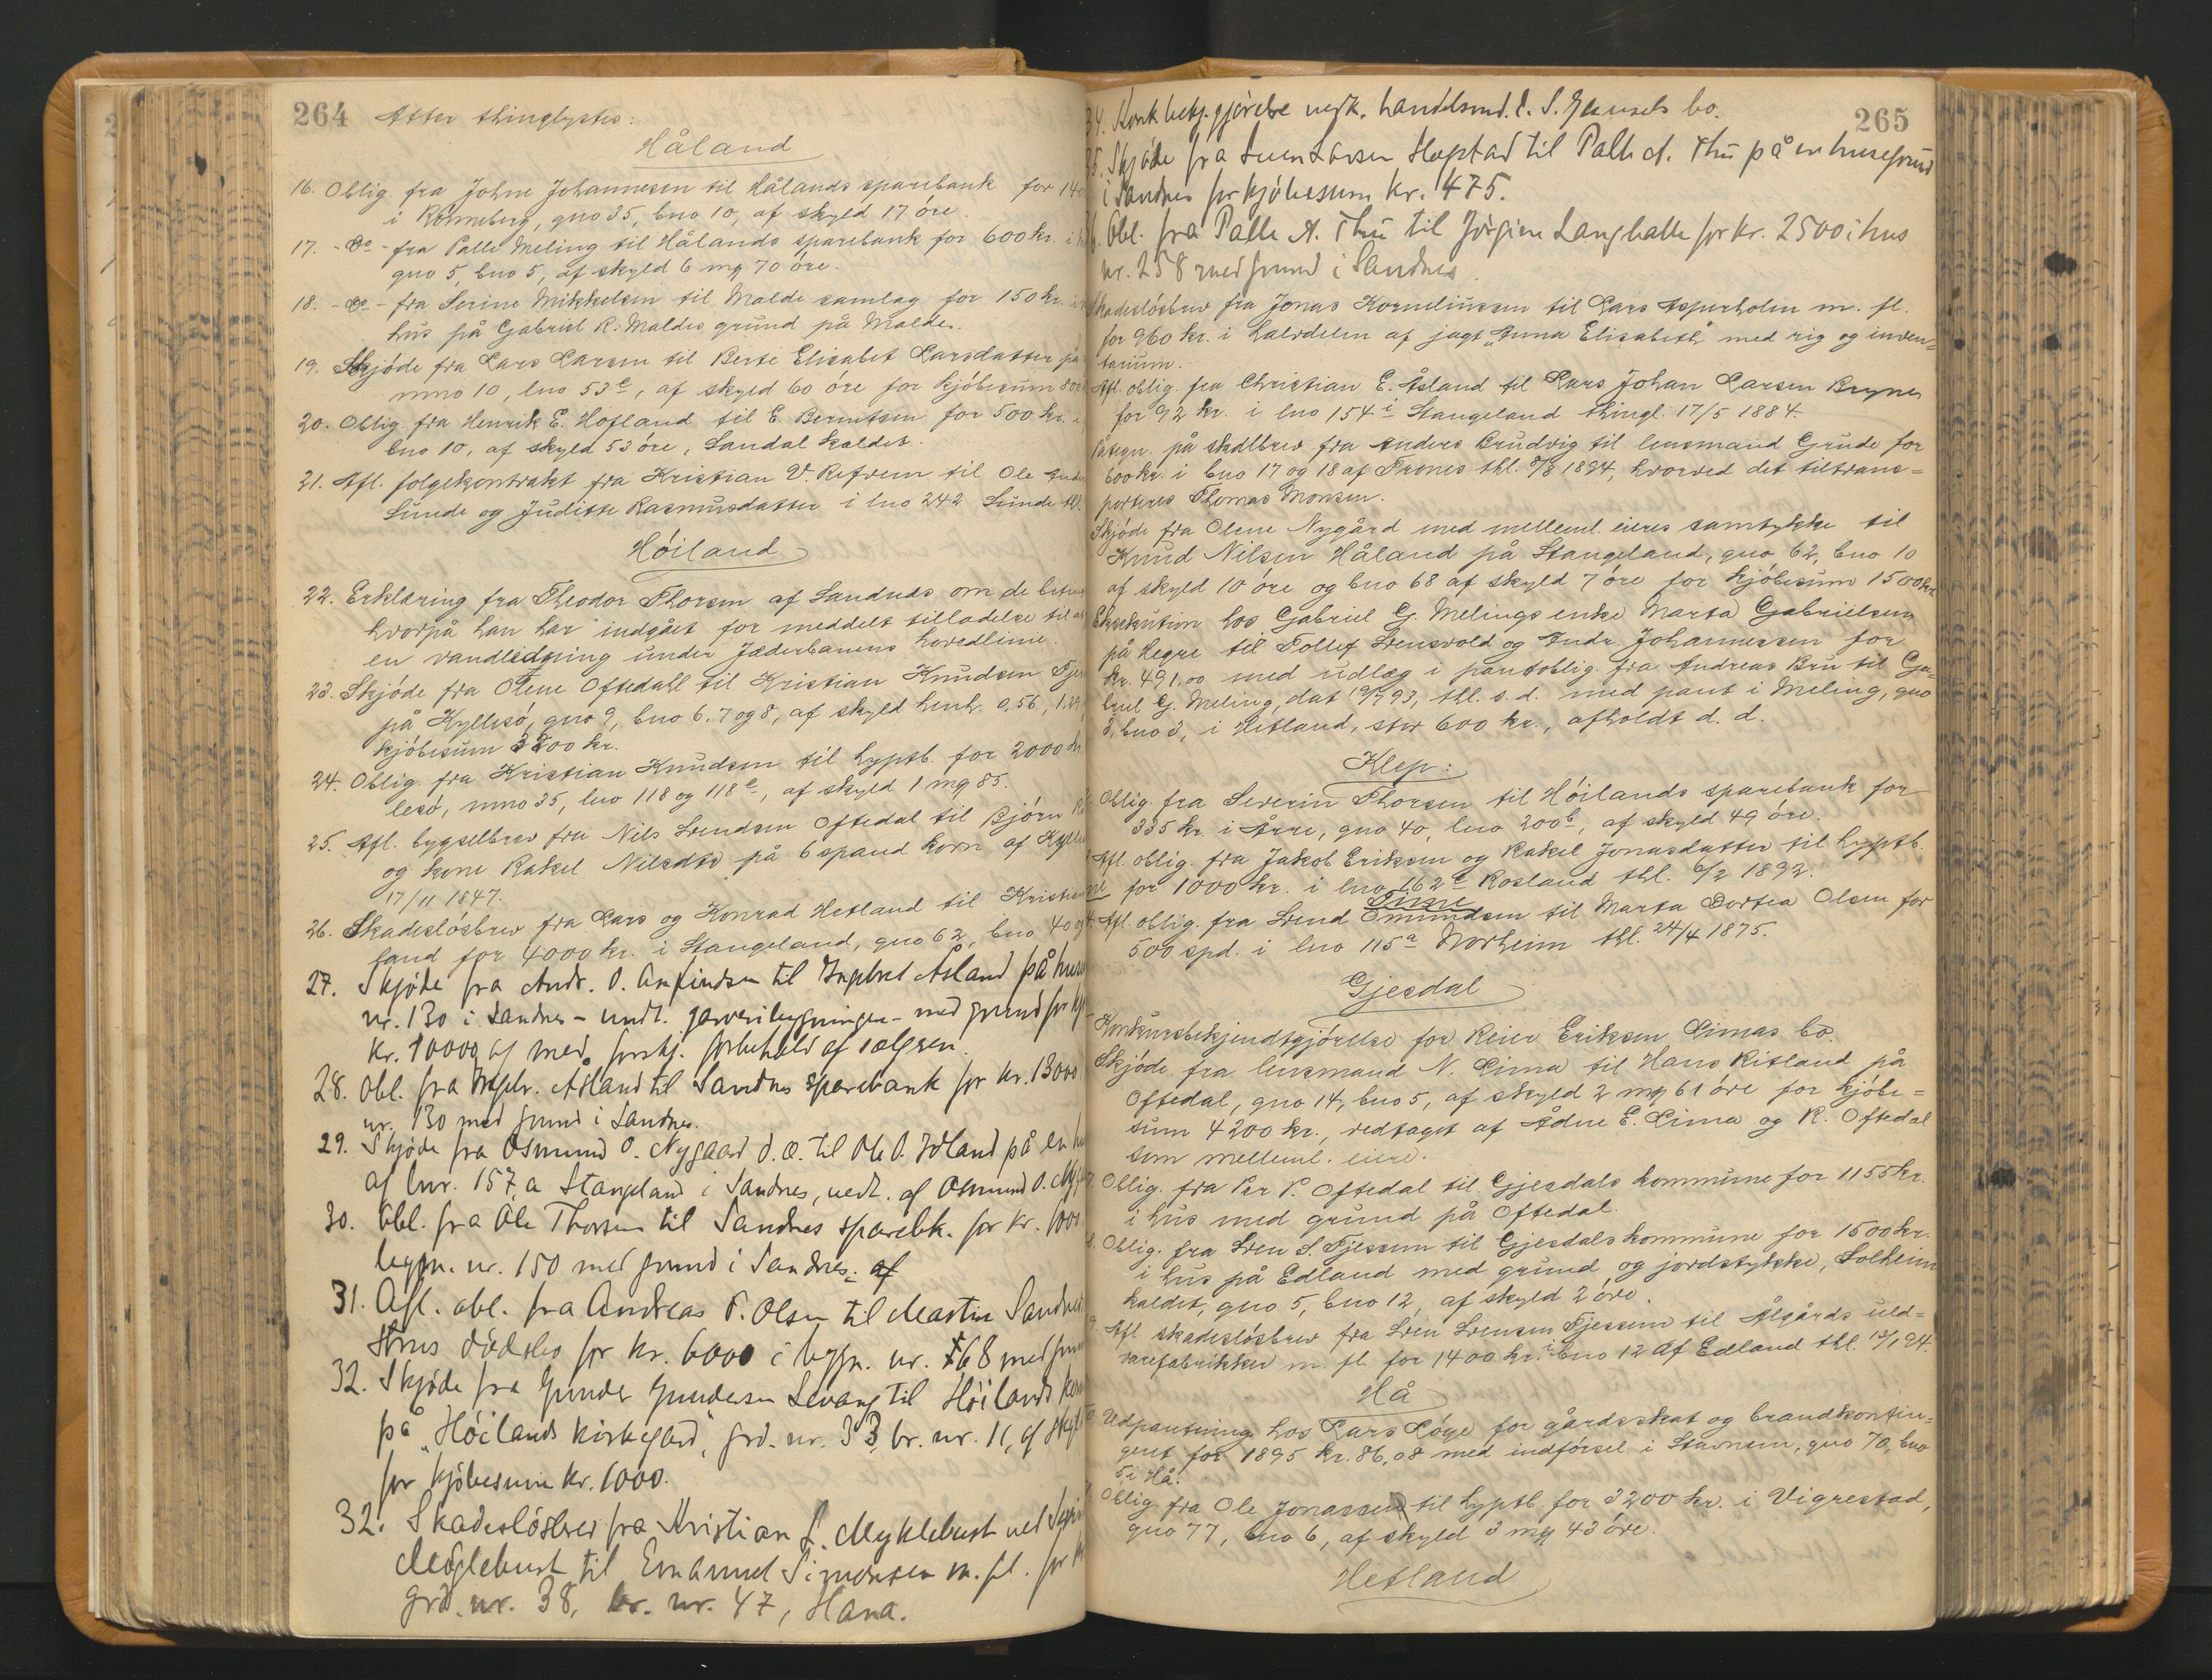 264
Atter thinglystes:
Håland
16. Oblig. fra Johne Johannesen til Hålands sparebank for 140
i Rønneberg, gno 35, bno 10, af skyld 17 øre.
17. - Do - fra Palle Meling til Hålands sparebank for 600 kr. i
gno 5, bno 5, af skyld 6 mg 70 øre.
18. - Do - fra Serine Mikkelsen til Malde samlag for 150 kr.
hus på Gabriel R. Maldes grund på Malde.
19. Skjøde fra Lars Larsen til Berte Elisabet Larsdatter på
mno 10, lno 53c, af skyld 60 øre for kjøbesum 800
20. Oblig. fra Henrik E. Hofland til E. Berentsen for 500 kr. i
bno 10, af skyld 53 øre, Sandal kaldet.
21. Afl. folgekontrakt fra Kristian V. Refrem til Ole
Sunde og Juditte Rasmusdatter i lno 242 Sunde thl.
Høiland
22. Erklæring fra Theodor Thorsen af Sandnes om de
hvorpå han har indgået for meddelt tilladelse til
en vandledning under Jæderbanens hovedlinie.
23. Skjøde fra Olene Oftedahl til Kristian Knudsen
på Kyllesø, gno 9, bno 6, 7 og 8, af skyld henh. 0,56, 1.29
kjøbesum 3200 kr.
24. Oblig. fra Kristian Knudsen til hyptb. for 2000 kr
lesø, mno 35, lno 118 og 118c, af skyld 1 mg 85.
25. Afl. bygselbrev fra Nils Svendsen Oftedal til Bjørn
og kone Rakel Nilsdtr på 6 spand korn af
17/11 1847.
26. Skadesløsbrev fra Lars og Konrad Hetland til Kristian
land for 4000 kr. i Stangeland, gno 62, bno 40 og
27. Skjøde fra Andr. O. Anfindsen til Ingebret Åsland på
nr. 130 i Sandnes - undt. garveribygningen - med grund for
kr. 10000 og med forskj. forbehold af sælgeren.
28. Obl. fra Ingebr. Åsland til Sandnes sparebank for kr. 13000
nr. 130 med grund i Sandnes.
29. Skjøde fra Osmund O. Nygaard d. æ. til Ole O. Idland på en
af lnr. 157, a Stangeland i Sandnes, vedt. af Osmund O.
30. Obl. fra Ole Thorsen til Sandnes sparebk. for kr. 1000
bygn. nr. 150 med grund i Sandnes. af
31. Afl. obl. fra Andreas T. Olsen til Martin
dødsbo for kr. 6000 i bygn. nr. 168 med
32. Skjøde fra Gunder Gundersen Levang til Høilands
på "Høilands kirkegård", grd. nr. 33, br. nr. 11, af
for kjøbesum kr. 1000.
32. Skadesløsbrev fra Kristian L. Myklebust ved
Møglebust til Emanuel Simonsen m. fl. for
grd. nr. 38, br. nr. 47, Hana.
265
34. Konk.bekj.gjørelse vedk. handelsmd. C. S. Gausels bo.
35. Skjøde fra Sven Larsen Hoptad til Palle A. Thu på en husegrund
i Sandnes for kjøbesum kr. 475.
Obl. fra Palle A. Thu til Jørgine Langballe for kr. 2500 i hus
nr. 258 med grund i Sandnes.
Skadesløsbrev fra Jonas Korneliussen til Lars Asperholm m. fl.
for 960 kr. i halvdelen af jagt "Anna Elisabeth" med rig og inven=
tarium.
Afl. oblig. fra Christian E. Åsland til Lars Johan Larsen Bryne
for 92 kr. i lno 154 i Stangeland thingl. 17/5 1884.
Påtegn. på skdlbrev fra Anders Brudvig til lensmand Grude for
600 kr. i bno 17 og 18 af Trones thl. 8/8 1894, hvorved det tiltrans=
porteres Thomas Monsen.
Skjøde fra Olene Nygård med melleml. eieres samtykke til
Knud Nilsen Håland på Stangeland, gno 62, bno 10
af skyld 10 øre og bno 68 af skyld 7 øre for kjøbesum 1500 kr
Eksekution hos Gabriel G. Melings enke Marta Gabrielsen
på Hegre til Tollef Svensvold og Andr. Johannessen for
kr. 491,00 med udlæg i pantoblig. fra Andreas Bru til Ga=
briel G. Meling, dat 19/7 93, thl. s. d. med pant i Meling, gno
3, bno 3, i Hetland, stor 600 kr., afholdt d. d.
Klep:
Oblig. fra Severin Thorsen til Høilands sparebank for
335 kr. i Årre, gno 40, lno 200b, af skyld 49 øre.
Afl. oblig. fra Jakob Eriksen og Rakel Jonasdatter til hyptb.
for 1000 kr. i lno 162c Rosland thl. 6/2 1892.
Time
Afl. oblig. fra Svend Omundsen til Marta Dortea Olsen for
500 spd. i lno 115a Norheim thl. 24/4 1875.
Gjesdal
Konkursbekjendtgjørelse for Reier Eriksen Limas bo.
Skjøde fra lensmand N. Lima til Hans Ritland på
Oftedal, gno 14, bno 5, af skyld 2 mg 61 øre for kjøbe=
sum 4200 kr., vedtaget af Ådne E. Lima og R. Oftedal
som melleml. eiere.
Oblig. fra Per P. Oftedal til Gjesdals kommune for 1155 kr.
i hus med grund på Oftedal.
Oblig. fra Sven S. Fjessem til Gjesdals kommune for 1500 kr.
i hus på Edland med grund og jordstykke, Solheim
kaldet, gno 5, bno 12, af skyld 2 øre.
Afl skadesløsbrev fra Sven Svensen Fjessem til Ålgårds uld=
varefabrikker m. fl. for 1400 kr. i bno 12 af Edland thl. 13/1 94.
Hå
Udpantning hos Lars Løge for gårdsskat og brandkontin=
gent for 1895 kr. 86,08 med indførsel i Stavnem, gno 70, bno
5 i Hå.
Oblig fra Ole Jonassen til hyptb for 3200 kr. i Vigrestad,
gno 77, bno 6, af skyld 3 mg 43 øre.
Hetland